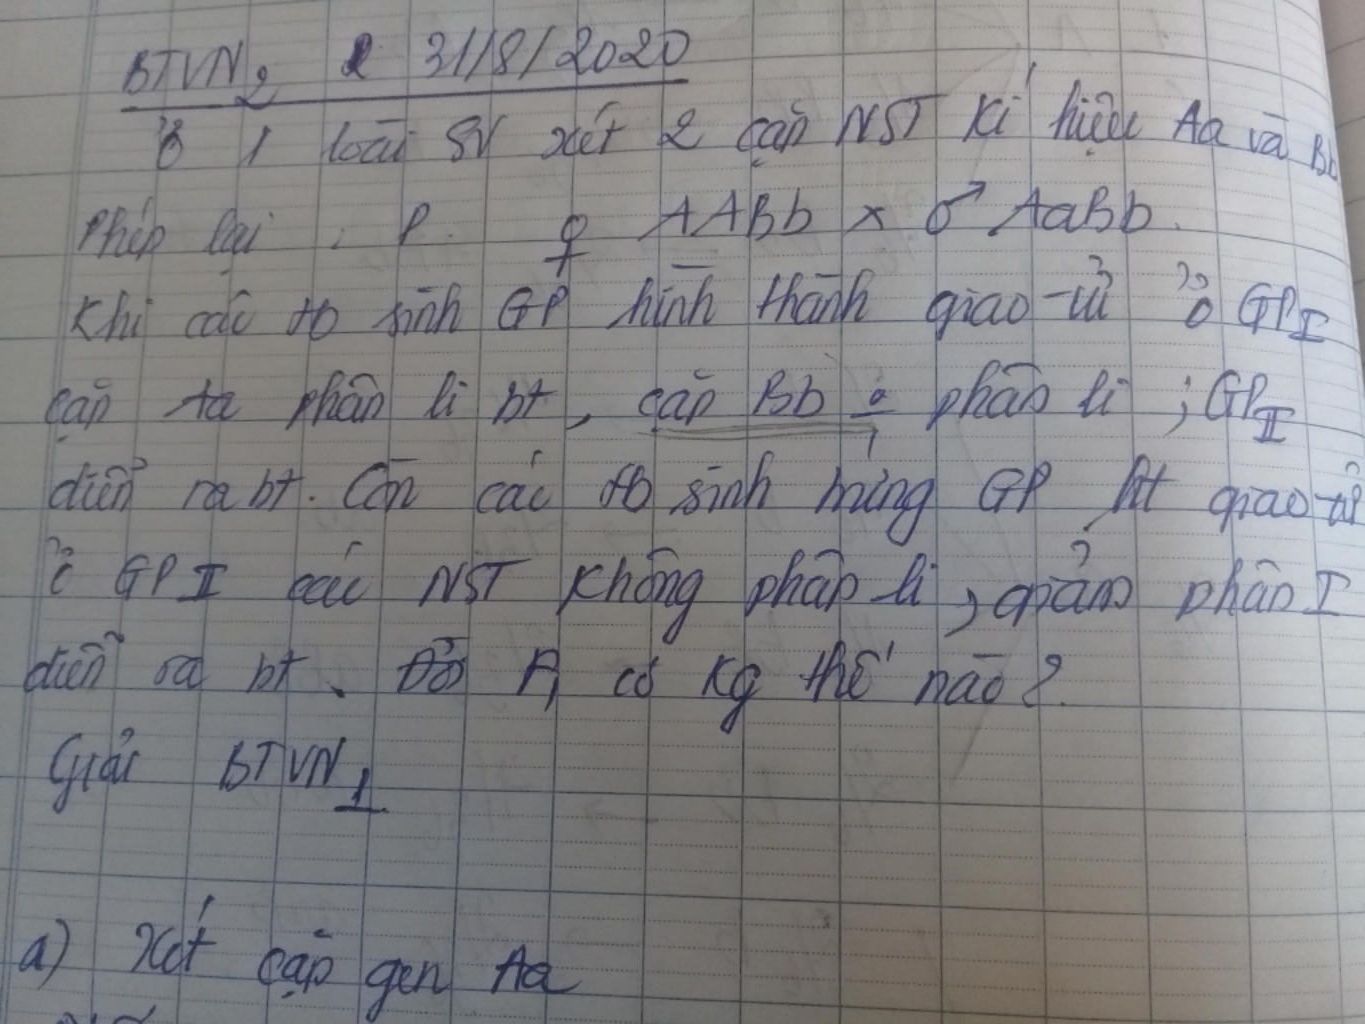 BTVN2 2 31/8/2020
Ở 1 loài SV xét 2 cặp NST kí hiệu Aa và Bb
Phép lai : P. ♀ AABb x ♂ AaBb.
Khi các tb sinh GP hình thành giao tử ở GPI
cặp Aa phân li bt, cặp Bb o phân li ; GPII
diễn ra bt. Còn các tb sinh trứng GP ht giao tử
ở GP I các NST không phân li, giảm phân I
diễn ra bt. Đời F1 có kg thế nào?
Giải BTVN1
a) Xét cặp gen Aa